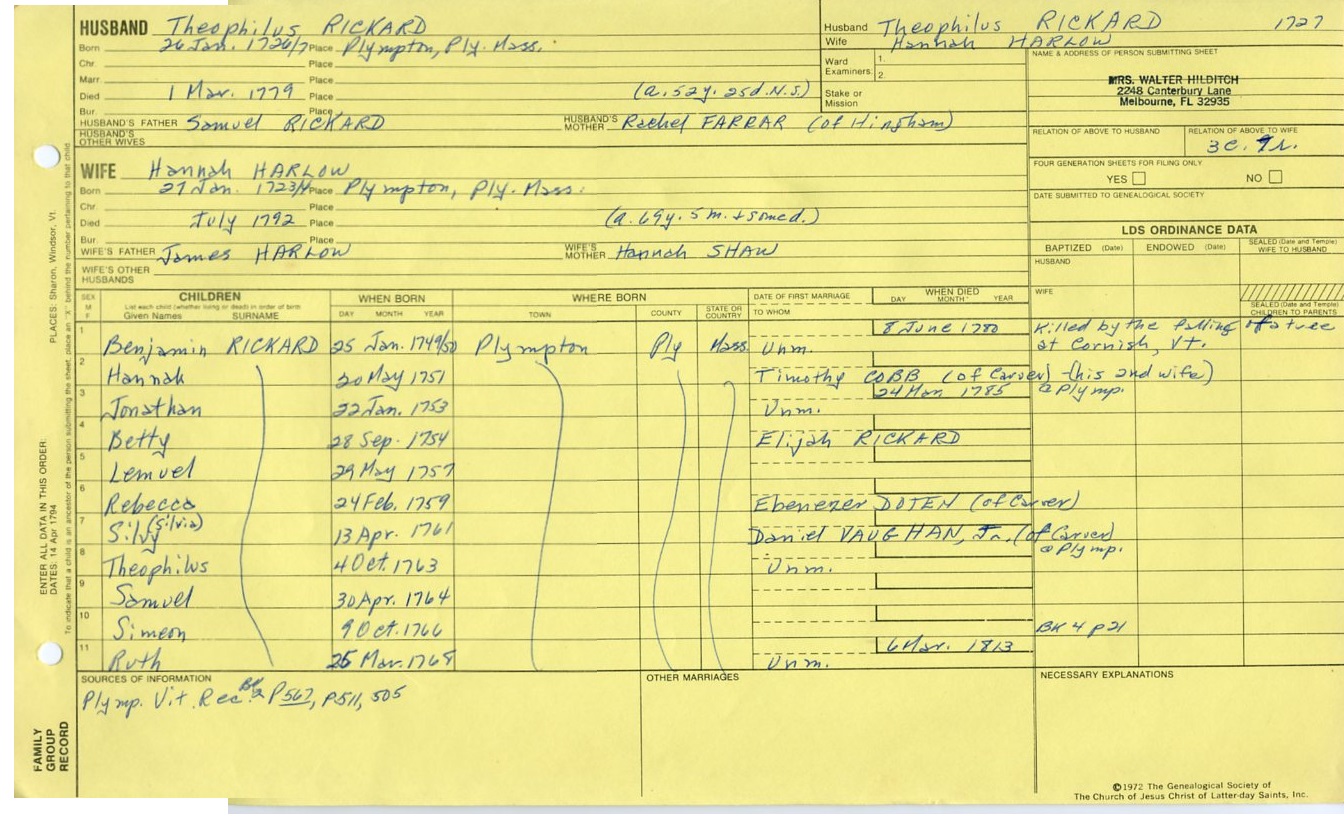 HUSBAND Theophilus RICKARD
Born 26 Jan. 1726/7 Place Plympton, Ply. Mass.
Chr. Place
Marr. Place
Died 1 Mar. 1779 Place (a. 52y. 25d. N.S.)
Bur. Place
HUSBAND'S FATHER Samuel RICKARD HUSBAND'S MOTHER Rachel FARRAR (of Hingham)
HUSBAND'S OTHER WIVES
Husband Theophilus RICKARD 1727
Wife Hannah HARLOW
Ward Examiners: 1. 2.
Stake or Mission
NAME & ADDRESS OF PERSON SUBMITTING SHEET
MRS. WALTER HILDITCH
2248 Canterbury Lane
Melbourne, FL 32935
RELATION OF ABOVE TO HUSBAND RELATION OF ABOVE TO WIFE
3C. 9r.
FOUR GENERATION SHEETS FOR FILING ONLY
YES NO
DATE SUBMITTED TO GENEALOGICAL SOCIETY
WIFE Hannah HARLOW
Born 27 Jan. 1723/4 Place Plympton, Ply. Mass.
Chr. Place
Died July 1792 Place (a. 69y. 5 m. + some d.)
Bur. Place
WIFE'S FATHER James HARLOW WIFE'S MOTHER Hannah SHAW
WIFE'S OTHER HUSBANDS
LDS ORDINANCE DATA
BAPTIZED (Date) ENDOWED (Date) SEALED (Date and Temple) WIFE TO HUSBAND
HUSBAND
WIFE
SEALED (Date and Temple) CHILDREN TO PARENTS
SEX M F CHILDREN WHEN BORN WHERE BORN DATE OF FIRST MARRIAGE WHEN DIED
List each child (whether living or dead) in order of birth DAY MONTH YEAR
Given Names SURNAME DAY MONTH YEAR TOWN COUNTY STATE OR COUNTRY TO WHOM
1 Benjamin RICKARD 25 Jan. 1749/50 Plympton Ply Mass. Unm. 8 June 1780 Killed by the falling of a tree at Cornish, Vt.
2 Hannah 20 May 1751 Timothy COBB (of Carver) (his 2nd wife)
3 Jonathan 22 Jan. 1753 Unm. 24 Mar 1785 @ Plymp.
4 Betty 28 Sep. 1754 Elijah RICKARD
5 Lemuel 29 May 1757
6 Rebecca 24 Feb. 1759 Ebenezer DOTEN (of Carver)
7 Silvy (Silvia) 13 Apr. 1761 Daniel VAUGHAN, Jr. (of Carver)
8 Theophilus 4 Oct. 1763 Unm. @ Plymp.
9 Samuel 30 Apr. 1764
10 Simeon 9 Oct. 1766 BK 4 p21
11 Ruth 25 Mar. 1768 Unm. 6 Mar. 1813
SOURCES OF INFORMATION
Plymp. Vit. Rec. P 567, P511, 505
OTHER MARRIAGES
NECESSARY EXPLANATIONS
©1972 The Genealogical Society of
The Church of Jesus Christ of Latter-day Saints, Inc.
ENTER ALL DATA IN THIS ORDER:
DATES: 14 Apr 1794 PLACES: Sharon, Windsor, Vt.
To indicate that a child is an ancestor of the person submitting the sheet, place an "X" behind the number pertaining to that child.
FAMILY GROUP RECORD